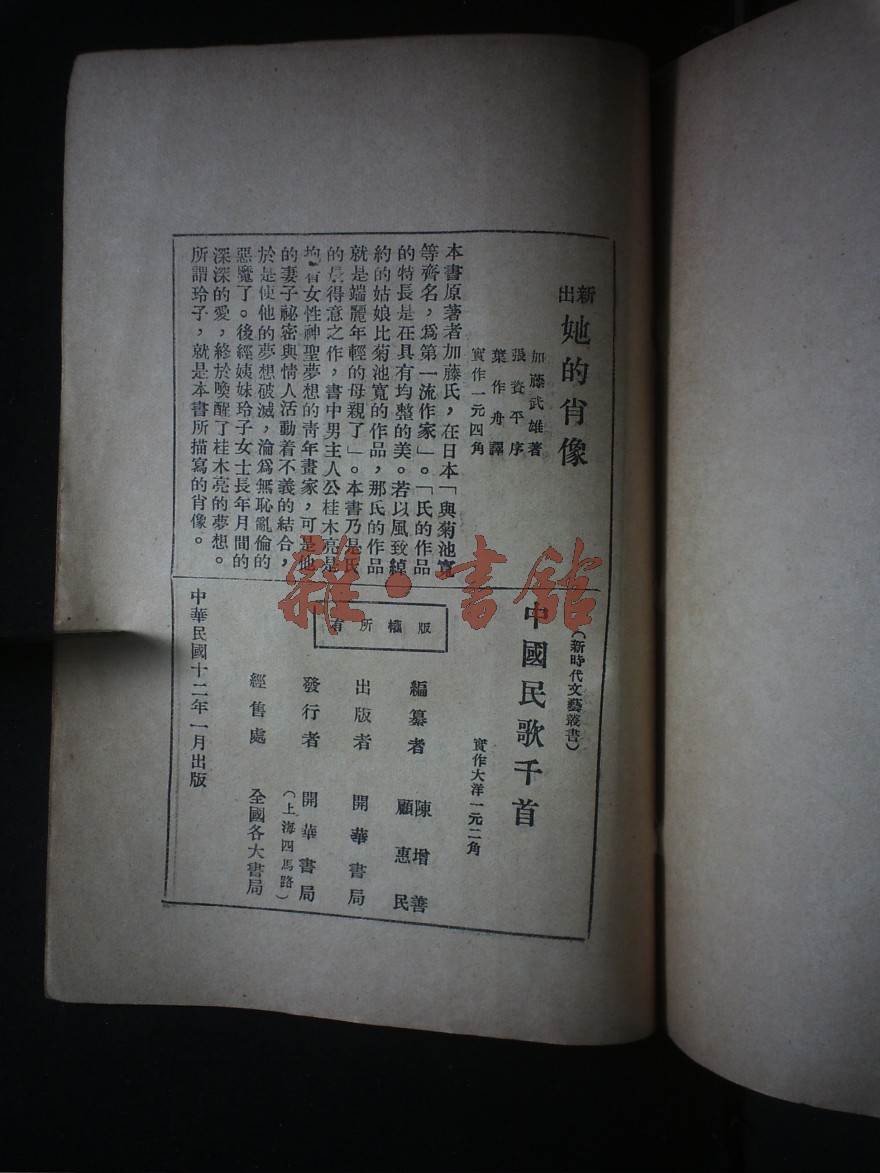 新出
她的肖像
加藤武雄著
張資平序
葉作舟譯
實作一元四角
本書原著者加藤氏，在日本「與菊池寬
等齊名，爲第一流作家」。「氏的作品
的特長是在具有均整的美。若以風致綽
約的姑娘比菊池寬的作品，那氏的作品
就是端麗年輕的母親了」。本書乃是氏
的最得意之作，書中男主人公桂木亮是
抱有女性神聖夢想的靑年畫家，可是他
的妻子祕密與情人活動着不義的結合，
於是使他的夢想破滅，淪爲無恥亂倫的
惡魔了。後經姨妹玲子女士長年月間的
深深的愛，終於喚醒了桂木亮的夢想。
所謂玲子，就是本書所描寫的肖像。
（新時代文藝叢書）
中國民歌千首
實作大洋一元二角
版權所有
編纂者 陳增善
顧惠民
出版者 開華書局
發行者 開華書局
（上海四馬路）
經售處 全國各大書局
中華民國十二年一月出版
雜·書館